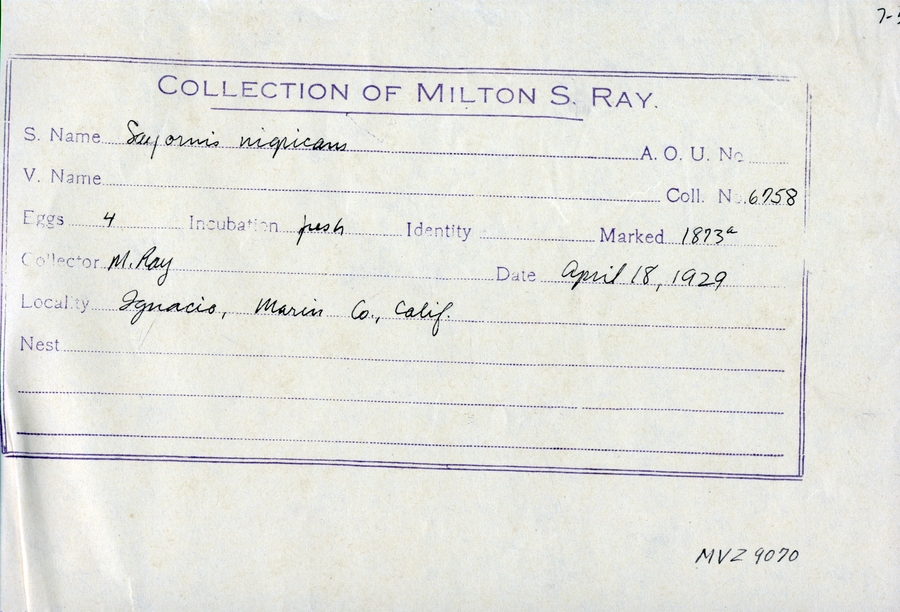 7-
COLLECTION OF MILTON S. RAY.
S. Name Sayornis nigricans A. O. U. No
V. Name Coll. No. 6758
Eggs 4 Incubation fresh Identity Marked 1873a
Collector M. Ray Date April 18, 1929
Locality Ignacio, Marin Co., Calif.
Nest
MVZ 9070